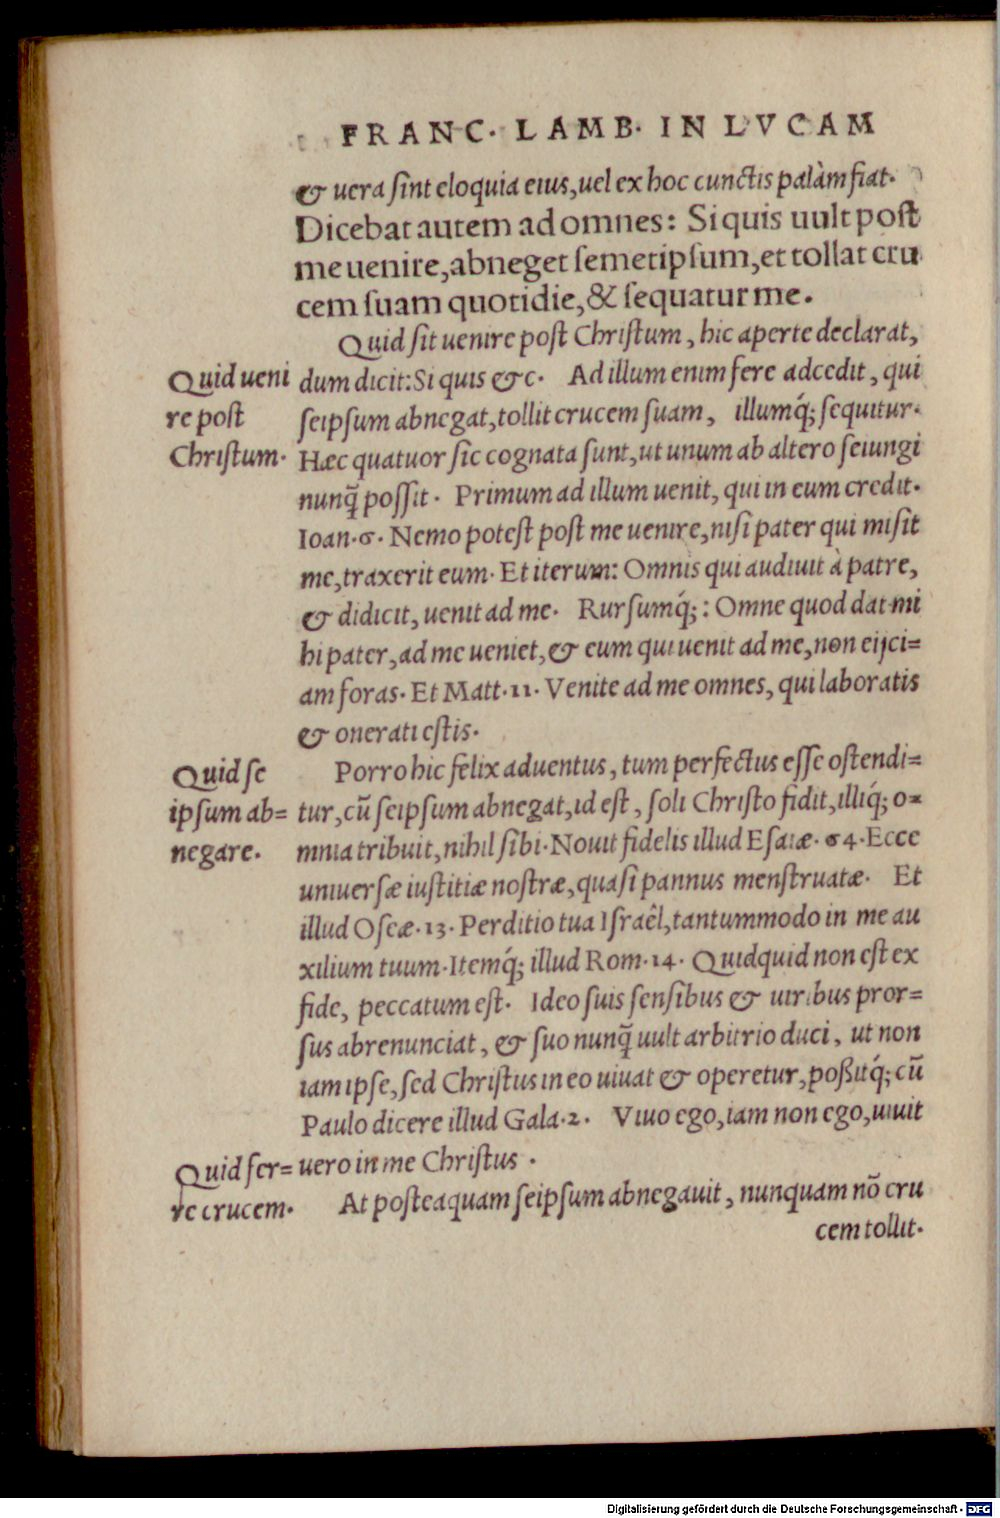 FRANC. LAMB. IN LVCAM
& uera sint eloquia eius, uel ex hoc cunctis palàm fiat.
Dicebat autem ad omnes: Si quis uult post
me uenire, abneget semetipsum, et tollat cru
cem suam quotidie, & sequatur me.
Quid sit uenire post Christum, hic aperte declarat,
Quid ueni
re post
Christum.
dum dicit: Si quis &c. Ad illum enim fere adcedit, qui
seipsum abnegat, tollit crucem suam, illumq́; sequitur.
Hæc quatuor sic cognata sunt, ut unum ab altero seiungi
nunq̃ possit. Primum ad illum uenit, qui in eum credit.
Ioan. 6. Nemo potest post me uenire, nisi pater qui misit
me, traxerit eum. Et iterum: Omnis qui audiuit à patre,
& didicit, uenit ad me. Rursumq́;: Omne quod dat mi
hi pater, ad me ueniet, & eum qui uenit ad me, non eijci=
am foras. Et Matt. 11. Venite ad me omnes, qui laboratis
& onerati estis.
Quid se
ipsum ab=
negare.
Porro hic felix aduentus, tum perfectus esse ostendi=
tur, cũ seipsum abnegat, id est, soli Christo fidit, illiq́; o=
mnia tribuit, nihil sibi. Nouit fidelis illud Esaiæ. 64. Ecce
uniuersæ iustitiæ nostræ, quasi pannus menstruatæ. Et
illud Oseæ. 13. Perditio tua Israêl, tantummodo in me au
xilium tuum. Itemq́; illud Rom. 14. Quidquid non est ex
fide, peccatum est. Ideo suis sensibus & uiribus pror=
sus abrenunciat, & suo nunq̃ uult arbitrio duci, ut non
iam ipse, sed Christus in eo uiuat & operetur, poßitq́; cũ
Paulo dicere illud Gala. 2. Viuo ego, iam non ego, uiuit
uero in me Christus.
Quid fer=
re crucem.
At posteaquam seipsum abnegauit, nunquam nõ cru
cem tollit.
Digitalisierung gefördert durch die Deutsche Forschungsgemeinschaft - DFG